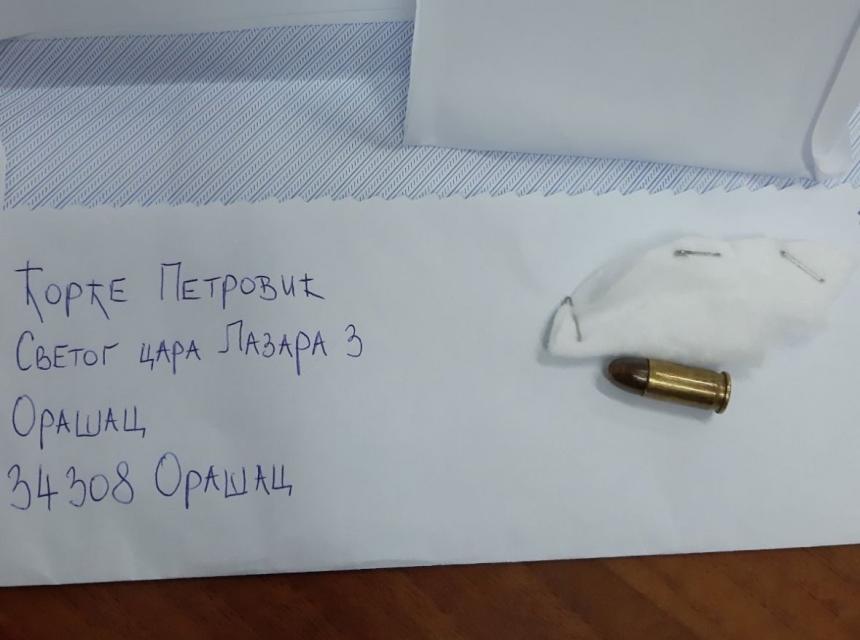 Ђорђе Петровић
Светог цара Лазара 3
Орашац
34308 Орашац